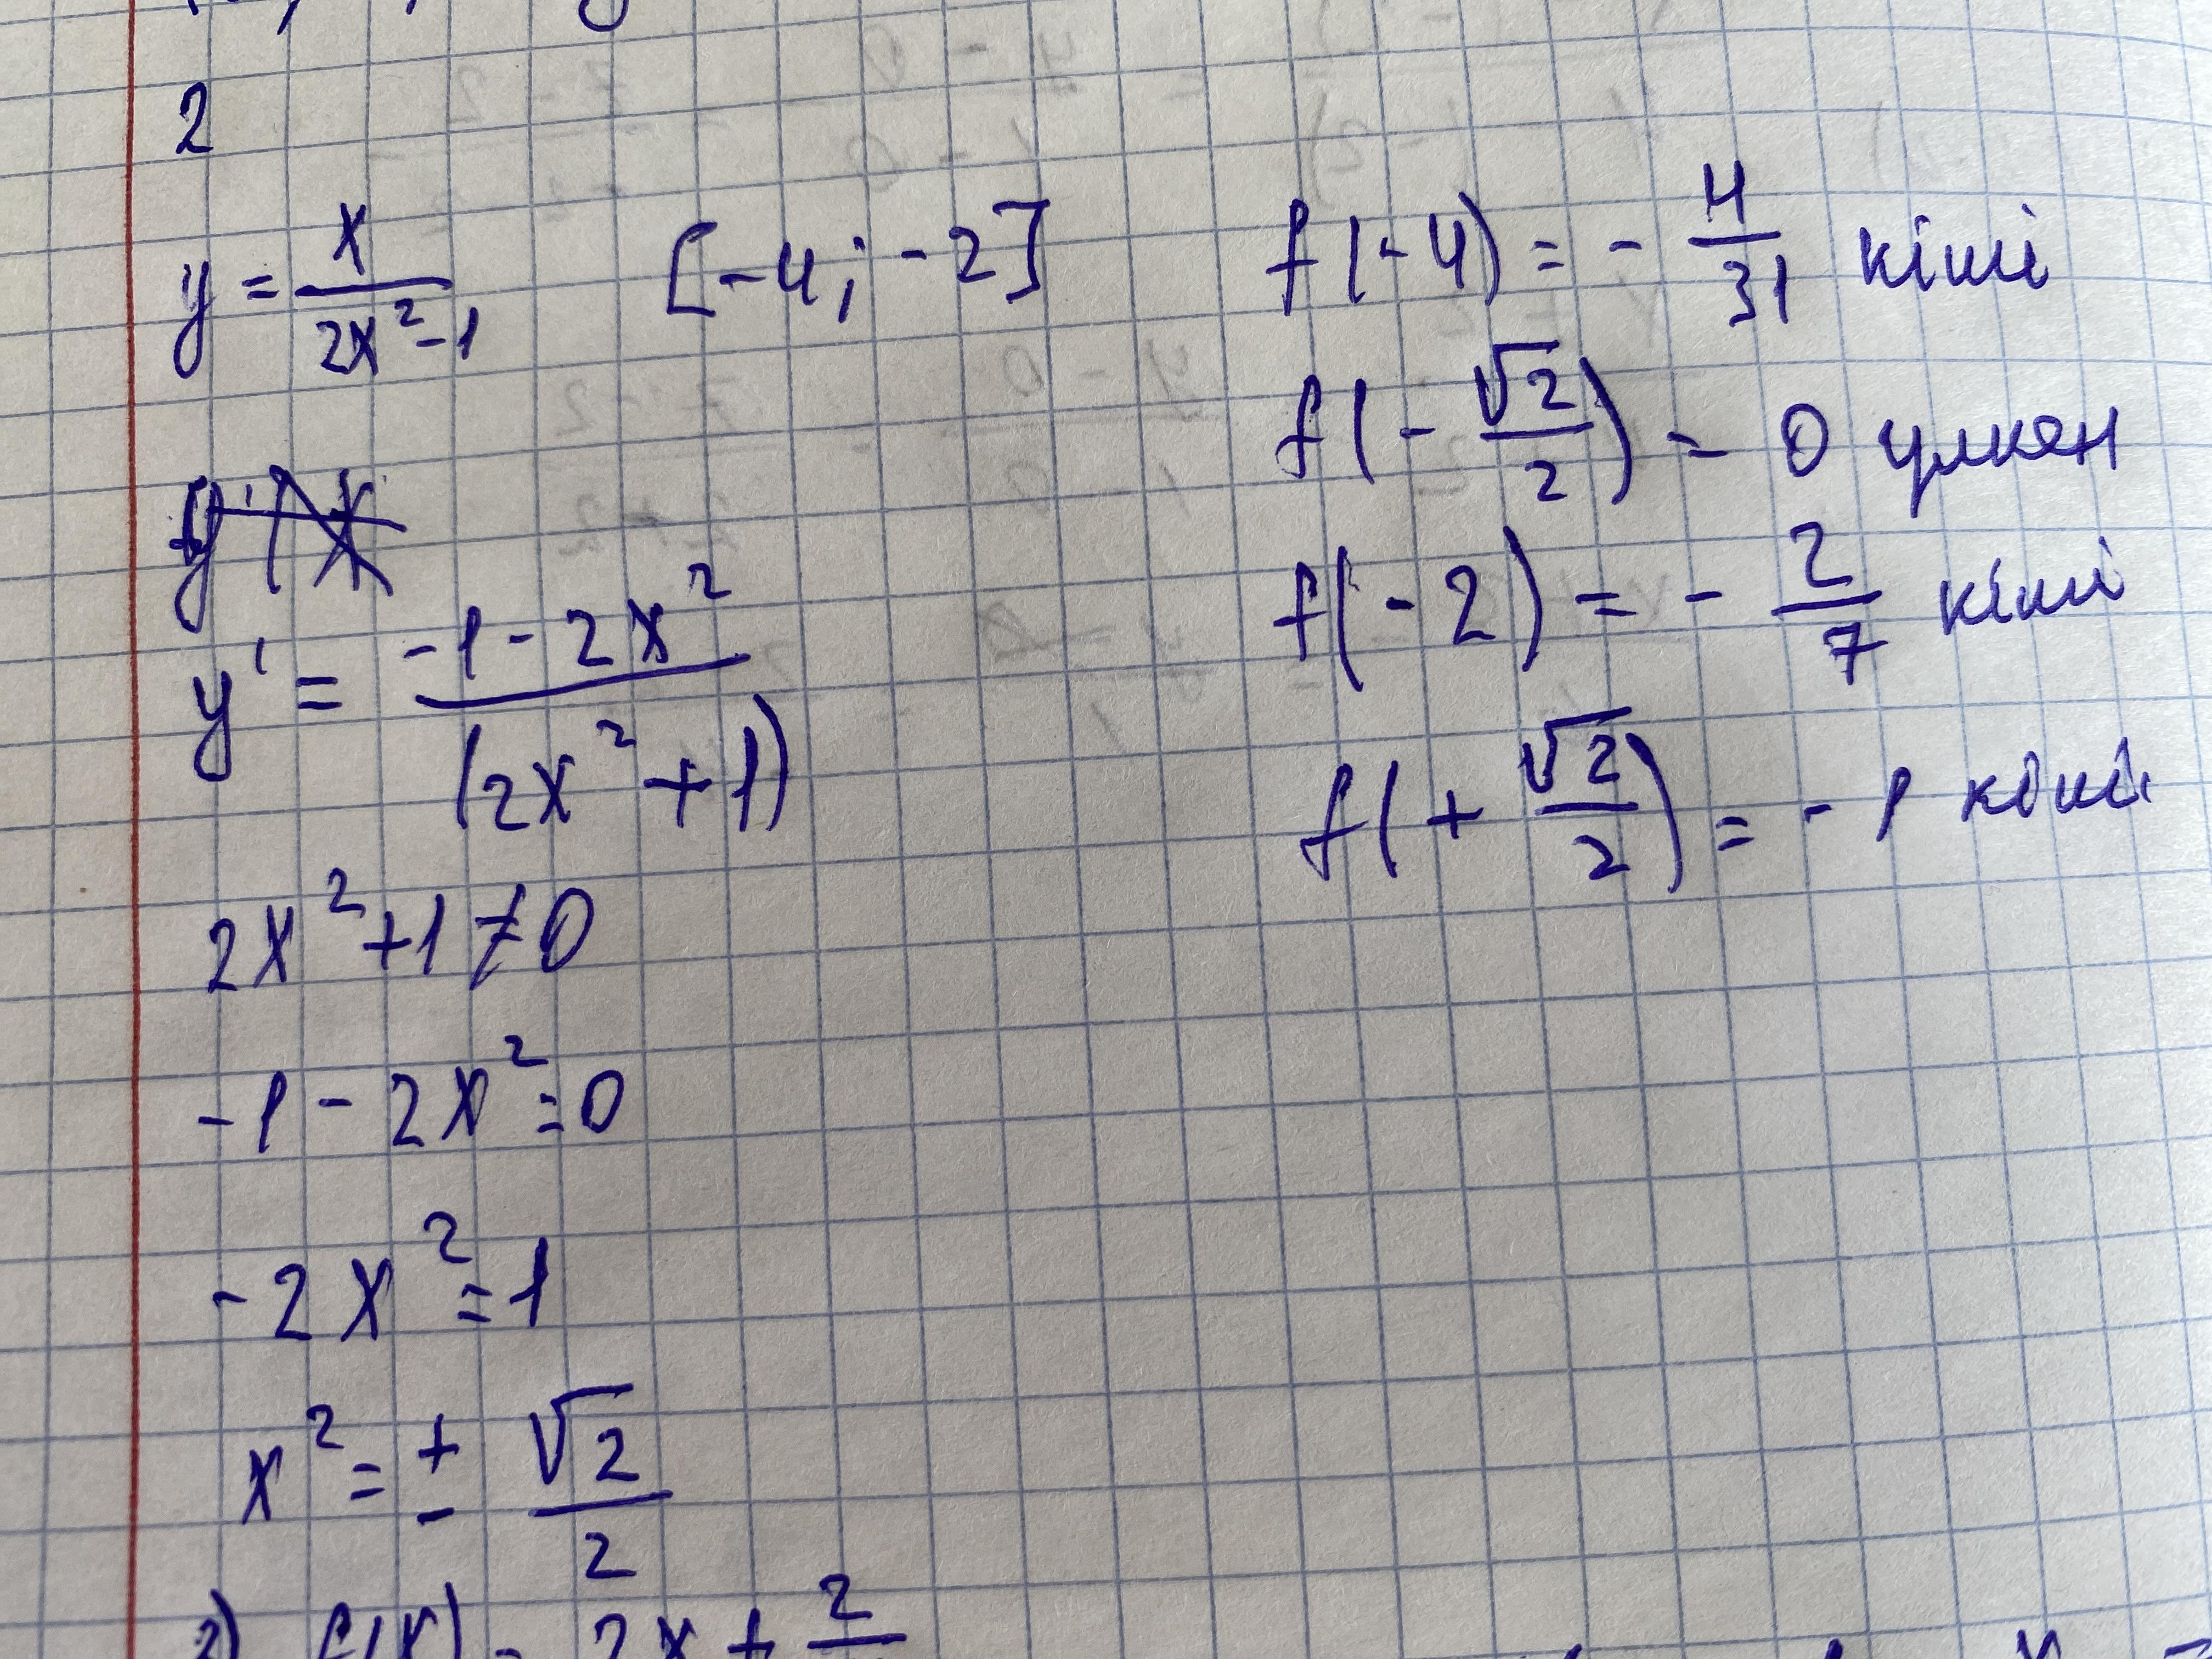 2
y = x/(2x²-1) [-4; -2]
y' = (-1-2x²)/(2x²+1)
2x²+1 ≠ 0
-1-2x²=0
-2x²=1
x² = ± √2/2
f(-4) = - 4/31 кіші
f(-√2/2) = 0 үлкен
f(-2) = - 2/7 кіші
f(+√2/2) = -1 кіші